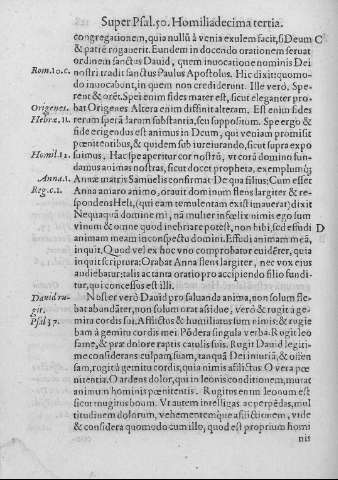 Super Psal. 50. Homilia decima tertia.
congregationem, quia nullū à venia exulem facit, si Deum C
& patrē rogauerit. Eundem in docendo orationem seruat
ordinem sanctus Dauid, quem inuocatione nominis Dei
Rom. 10. c. nostri tradit sanctus Paulus Apostolus. Hic dixit: quomo-
do inuocabunt, in quem non crediderunt. Ille verò, Spe-
rent & orēt. Spei enim fides mater est, sicut eleganter pro-
Origenes. bat Origenes Altera enim diffinit alteram. Est enim fides
Hebræ, 11. rerum sperādarum substantia, seu suppositio. Spe ergo &
fide erigendus est animus in Deum, qui veniam promisit
pœnitentibus, & quidem sub iureiurando, sicut supra expo
Homil. 12. suimus, Hac spe aperitur cor nostrū, vt corā domino fun-
damus animas nostras, sicut docet propheta, exemplumq;
Anna. 1. Annæ matris Samuelis confirmat De qua filius: Cum esset
Reg. c. 1. Anna amaro animo, orauit dominum flens largiter & re-
spondens Heli, (qui eam temulentam existimauerat) dixit
Nequaquā domine mi, nā mulier infœlix nimis ego sum
vinum & omne quod inebriare potest, non bibi, sed effudi D
animam meam in conspectu domini. Effudi animam meā,
inquit. Quod vel ex hoc vno comprobatur euidēter, quia
inquit scriptura: Orabat Anna flens largiter, nec vox eius
audiebatur: talis ac tanta oratio pro accipiendo filio fundi
tur, qui concessus est illi.
Dauid ru- Noster verò Dauid pro saluanda anima, non solum fle-
git. bat abundāter, non solum orat assiduè, verò & rugit à ge-
Psal 37. mitu cordis sui. Afflictus & humiliatus sum nimis: & rugie
bam à gemitu cordis mei Pōdera singula verba. Rugit leo
fame, & præ dolore raptis catulis suis. Rugit Dauid legiti-
me considerans culpam suam, tanquā Dei iniuriā, & offen
sam, rugit à gemitu cordis, quia nimis afflictus O vera pœ
nitentia. O ardens dolor, qui in leonis conditionem, mutat
animum hominis pœnitentis. Rugitus enim leonum est
sicut mugitus boum. Vt autem intelligas ac perpēdas, mul
titudinem dolorum, vehementemque afflictionem, vide
& considera quomodo cum illo, quod est proprium homi
nis